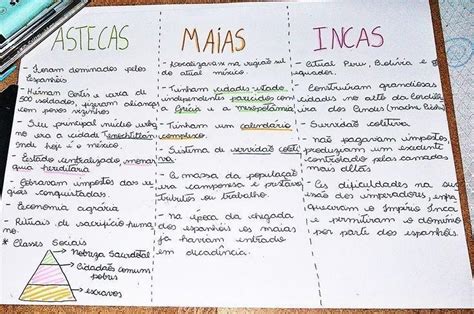 ASTECAS
- Foram dominados pelos
Espanhóis
- Hernan Cortés e cerca de
500 soldados, fizeram aliança
com povos vizinhos
- Seu principal núcleo urba
no era a cidade Tenochtitlan
onde hoje é o méxico.
- Estado centralizado, monar
quia hereditária
- Cobravam impostos das re
giões conquistadas.
- Economia agrária
- Rituais de sacrifício huma
no.
* Classes Sociais
Nobreza Sacerdotal
Cidadãos comum
pobres
escravos
MAIAS
- Localizava-se na região sul
do atual méxico.
- Tinham cidades estado
independentes parecidas com
a Grécia e a mesopotâmia
- Tinham um calendário
complexo.
- Sistema de servidão coleti
va
- A massa da população
era camponesa e prestava
tributos ou trabalho.
- na época da chegada
dos espanhóis os maias
já haviam entrado
em decadência.
INCAS
- Atual Peru, Bolívia e E
quador.
- Construíram grandiosas
cidades no alto da Cordilhe
ira dos Andes (machu Picchu)
- Servidão coletiva
- não pagavam impostos
produziam um excedente
controlado pelas camadas
mais altas
- As dificuldades na suce
ssão dos imperadores, enfra
queceram o Império Inca
e permitiram o domínio
por parte dos espanhóis.